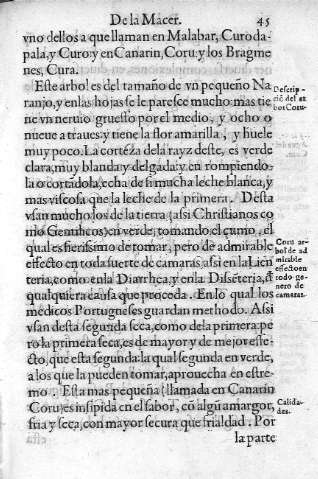 De la Macer. 45
vno dellos a que llaman en Malabar, Curoda
pala, y Curo: y en Canarin, Coru: y los Bragme
nes, Cura.
Este arbol es del tamaño de vn pequeño Na
ranjo, y en las hojas se le paresce mucho: mas tie
ne vn neruio gruesso por el medio, y ocho o
nueue a traues: y tiene la flor amarilla, y huele
muy poco. La corteza dela rayz deste, es verde
clara, muy blanda y delgada: y en rompiendo
la o cortādola, echa de si mucha leche blāca, y
mas viscosa que la leche de la primera. Desta
vsan mucho los de la tierra (assi Christianos co
mo Gentilicos) en verde, tomando el çumo, el
qual es fierissimo de tomar, pero de admirable
effecto en toda suerte de camaras, assi en la Lien
teria, como en la Diarrhea, y en la Disēteria, d̃
qualquiera causa que proceda. En lo qual los
medicos Portugueses guardan methodo. Assi
vsan desta segunda seca, como dela primera: pe
ro la primera seca, es de mayor y de mejor effe-
cto, que esta segunda: la qual segunda en verde,
a los que la pueden tomar, aprouecha en estre-
mo. Esta mas pequeña (llamada en Canarin
Coru) es insipida en el sabor, cō algū amargor,
fria y seca, con mayor secura que frialdad. Por
la parte
Descrip-
ciō del ar
bol Coru.
Coru ar-
bol de ad
mirable
effecto en
todo ge-
nero de
camaras.
Calida-
des.